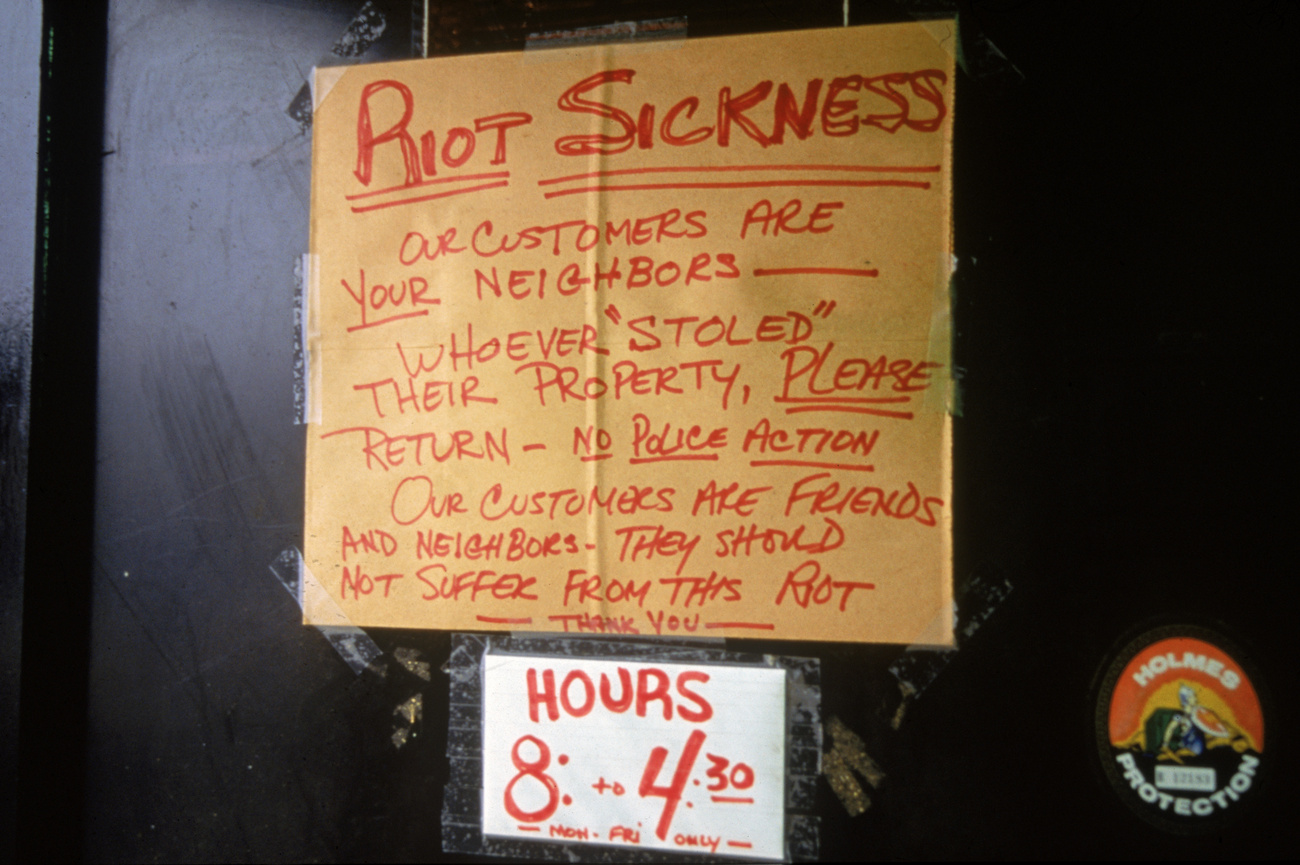 RIOT SICKNESS
OUR CUSTOMERS ARE
YOUR NEIGHBORS —
WHOEVER "STOLED"
THEIR PROPERTY, PLEASE
RETURN - NO POLICE ACTION
OUR CUSTOMERS ARE FRIENDS
AND NEIGHBORS - THEY SHOULD
NOT SUFFER FROM THIS RIOT
— THANK YOU —
HOURS
8: to 4:30
- MON - FRI ONLY -
HOLMES
PROTECTION